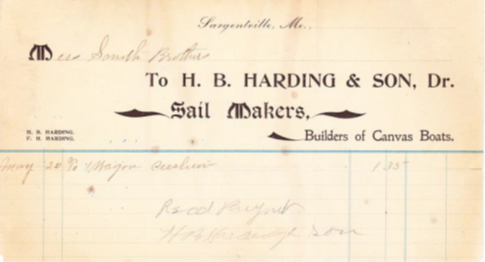 Sargentville, Me.,
Mess Smith Brothers
To H. B. HARDING & SON, Dr.
Sail Makers,
H. B. HARDING.
F. H. HARDING.
Builders of Canvas Boats.
May 20 To 1 Wagon Cushion 1 35
Recd Paymt
H B Harding & Son